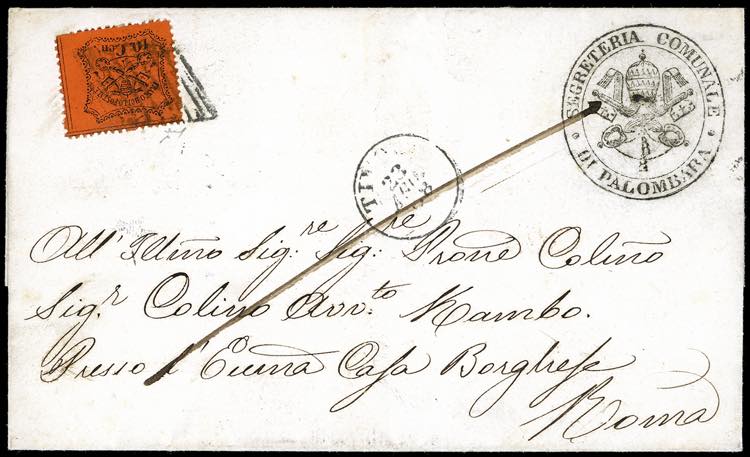 10 Cen.
SEGRETERIA COMUNALE
DI PALOMBARA
TIVOLI
23
68
All' Illmo Sig:re Sig:re Prone Colino
Sig.r Colino Avv:to Kambo.
Presso l'Eccma Casa Borghese
Roma